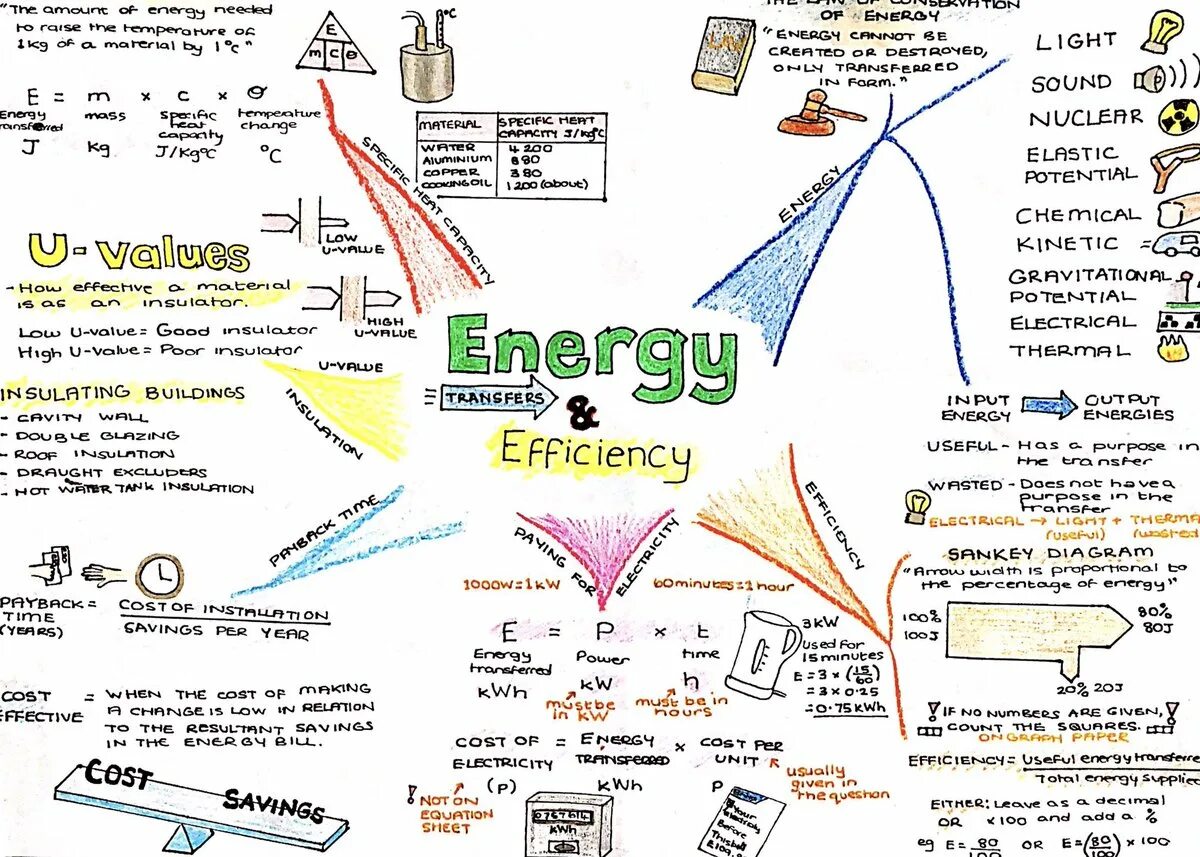 "The amount of energy needed
to raise the temperature of
1kg of a material by 1°c"
E
m c θ
°C
E = m × c × θ
Energy transferred
mass
specific heat capacity
temperature change
J
kg
J/kg°C
°C
SPECIFIC HEAT CAPACITY
MATERIAL SPECIFIC HEAT CAPACITY J/kg°C
WATER 4200
ALUMINIUM 880
COPPER 380
COOKING OIL 1200 (about)
THE LAW OF CONSERVATION
OF ENERGY
"ENERGY CANNOT BE
CREATED OR DESTROYED,
ONLY TRANSFERRED
IN FORM."
LAW
ENERGY
LIGHT
SOUND
NUCLEAR
ELASTIC
POTENTIAL
CHEMICAL
KINETIC =
GRAVITATIONAL
POTENTIAL
ELECTRICAL
THERMAL
U-values
- How effective a material
is as an insulator.
Low U-value = Good insulator
High U-value = Poor insulator
LOW
U-VALUE
HIGH
U-VALUE
U-VALUE
INSULATION
INSULATING BUILDINGS
- CAVITY WALL
- DOUBLE GLAZING
- ROOF INSULATION
- DRAUGHT EXCLUDERS
- HOT WATER TANK INSULATION
Energy
TRANSFERS
&
Efficiency
INPUT
ENERGY
OUTPUT
ENERGIES
USEFUL - Has a purpose in
the transfer
WASTED - Does not have a
purpose in the
transfer
ELECTRICAL → LIGHT + THERMA
(useful) (wasted
EFFICIENCY
SANKEY DIAGRAM
"Arrow width is proportional to
the percentage of energy"
100%
100J
80%
80J
20% 20J
! IF NO NUMBERS ARE GIVEN, !
COUNT THE SQUARES.
ON GRAPH PAPER
EFFICIENCY = Useful energy transferre
Total energy supplied
EITHER: Leave as a decimal
OR ×100 and add a %
eg E = 80/100 OR E = (80/100) × 100
PAYBACK TIME
PAYBACK
TIME
(YEARS)
= COST OF INSTALLATION
SAVINGS PER YEAR
COST
EFFECTIVE
= WHEN THE COST OF MAKING
A CHANGE IS LOW IN RELATION
TO THE RESULTANT SAVINGS
IN THE ENERGY BILL.
COST
SAVINGS
PAYING FOR ELECTRICITY
1000W = 1kW
60 minutes = 1 hour
E = P × t
Energy
transferred
Power
time
kWh
kW
h
must be
in kW
must be in
hours
3kW
used for
15 minutes
E = 3 × (15/60)
= 3 × 0.25
= 0.75 kWh
COST OF
ELECTRICITY
= ENERGY
TRANSFERRED
× COST PER
UNIT
(P)
kWh
P
usually
given in
the question
! NOT ON
EQUATION
SHEET
kWh
Your
electricity